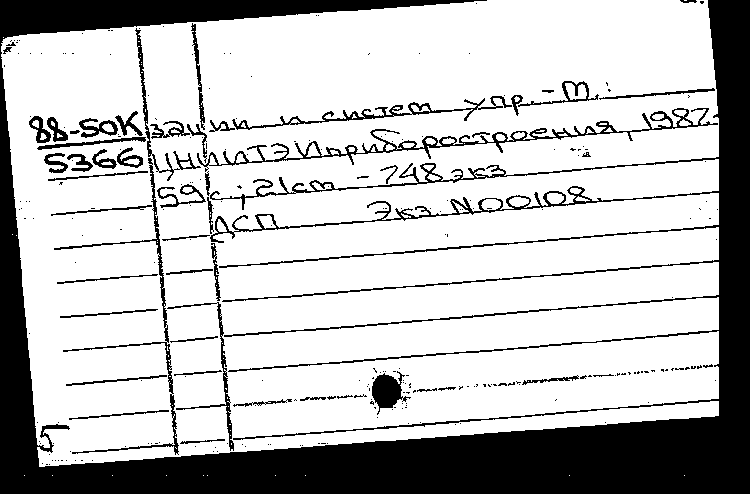 88-50К зации и систем упр. - М.:
5366 ЦНИИТЭИприборостроения, 1987-
59с ; 21см - 748 экз
ДСП Экз N00108.
5